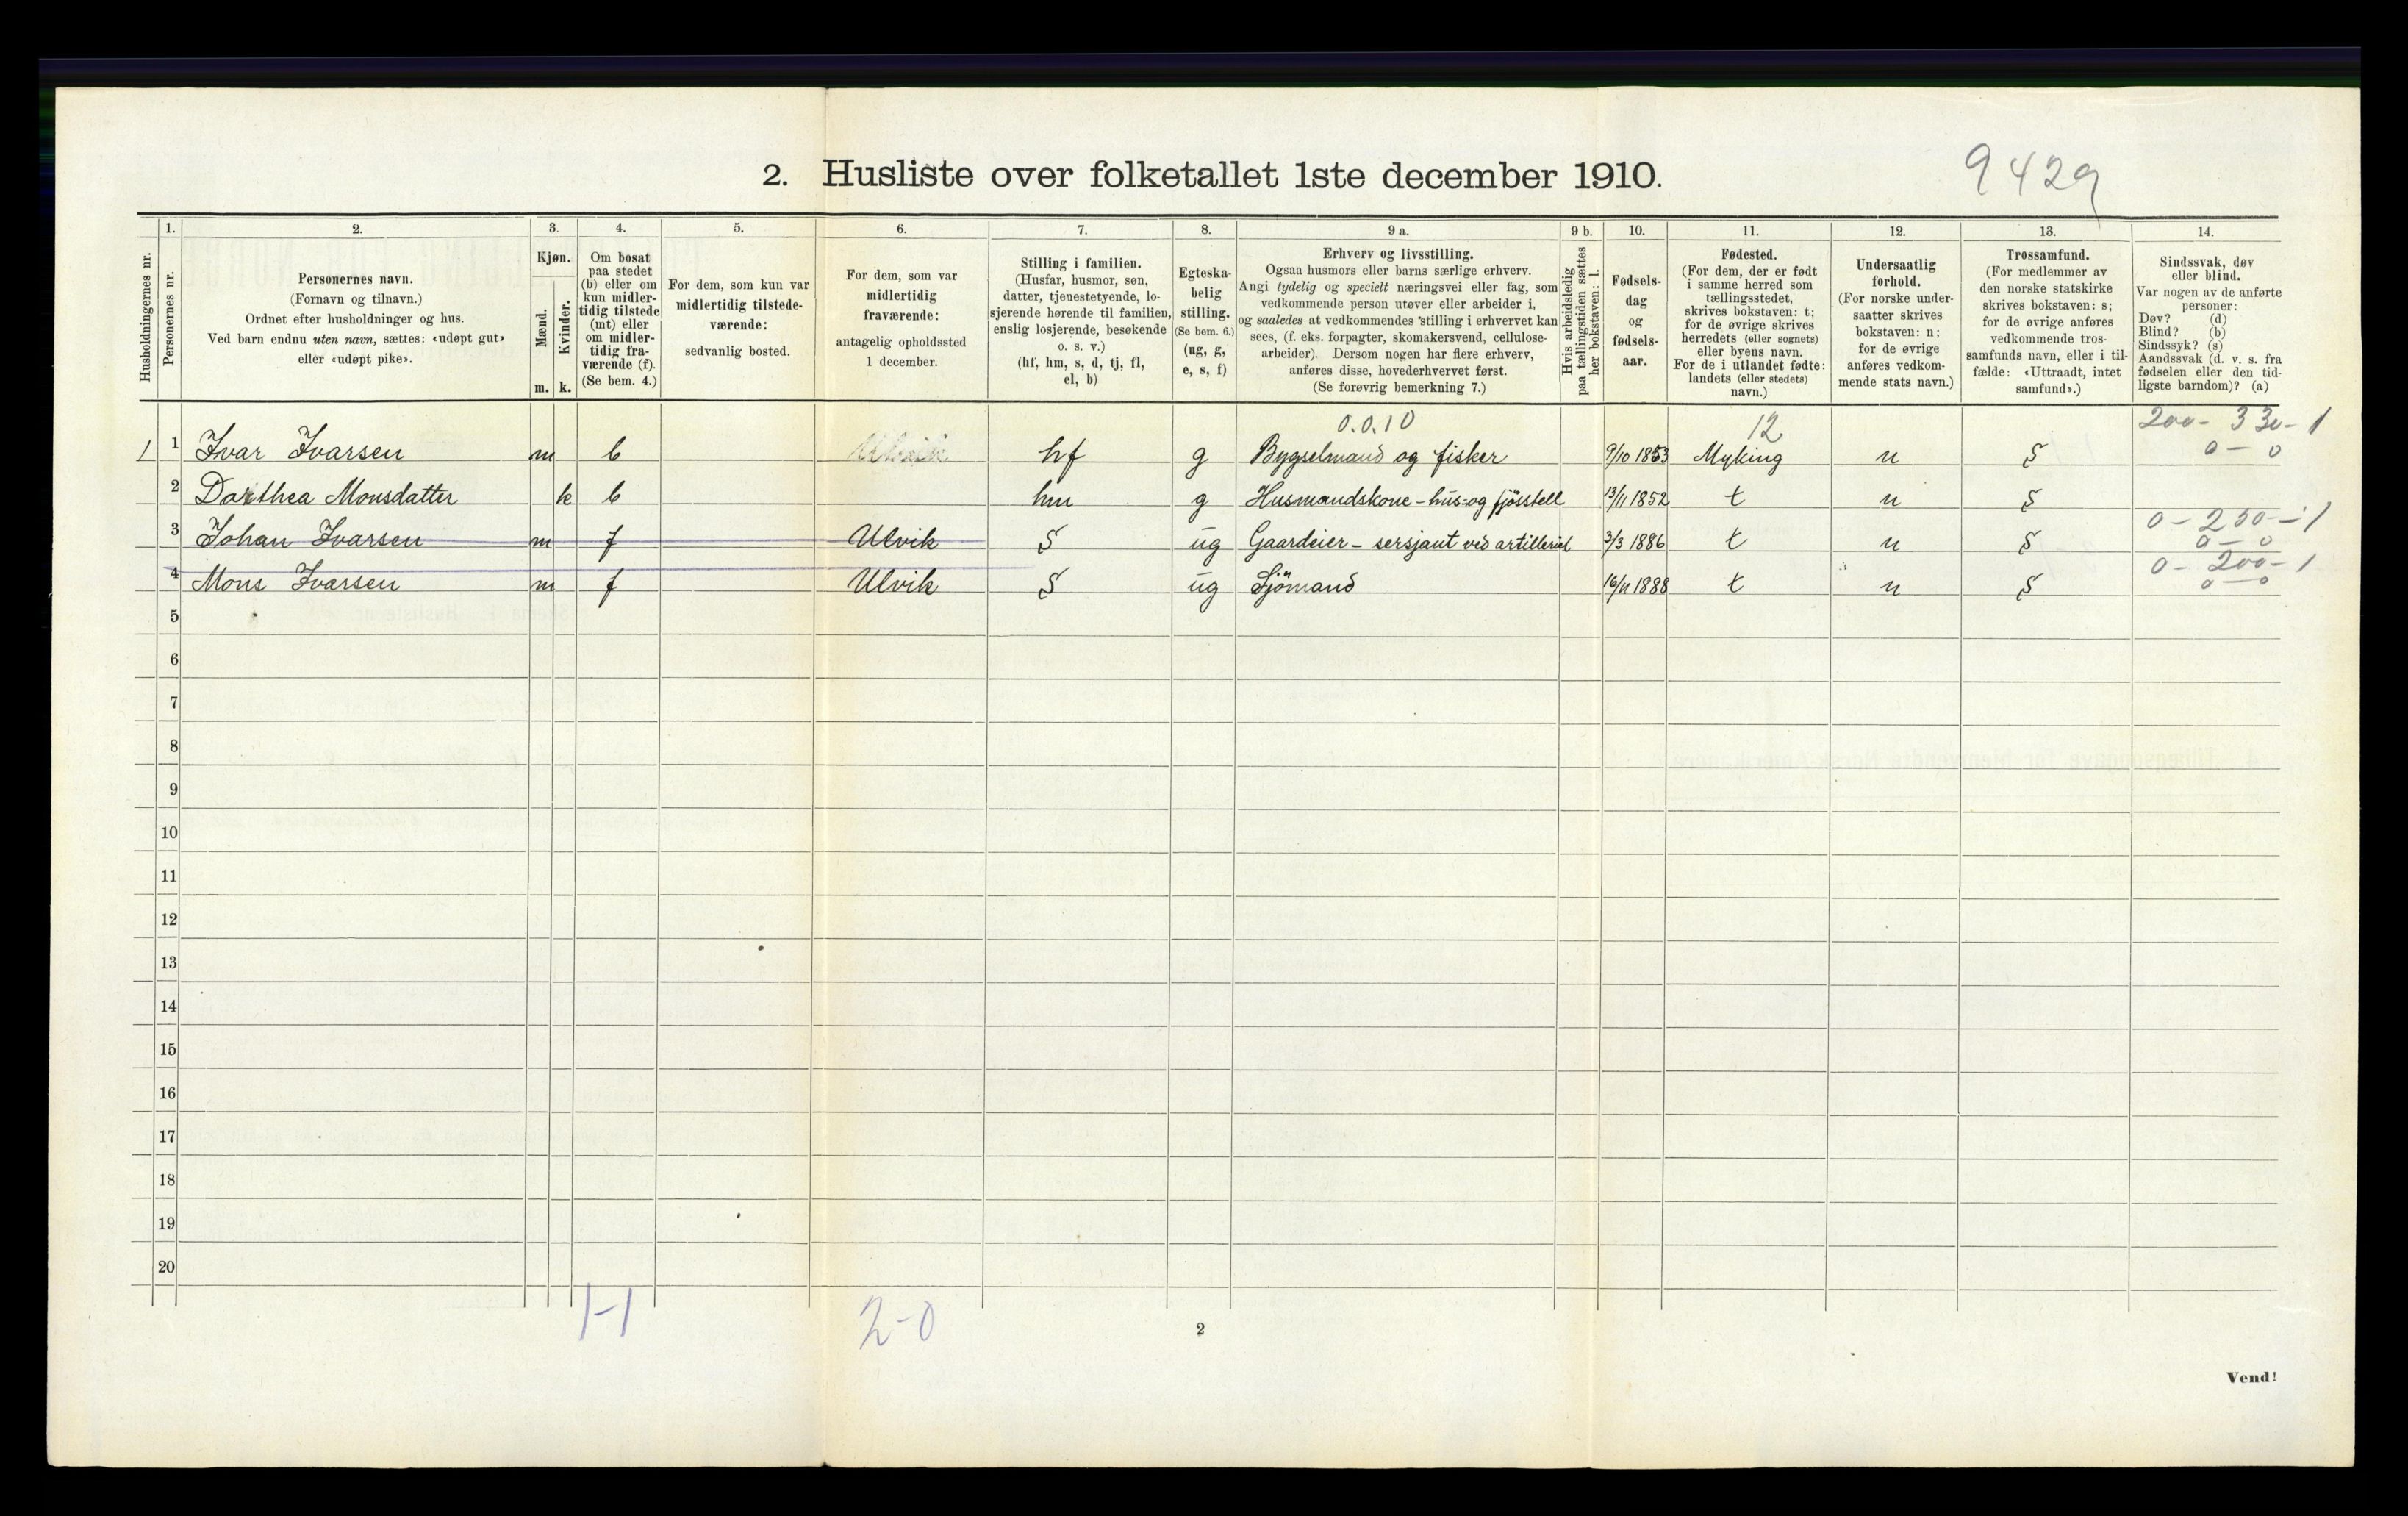 2. Husliste over folketallet 1ste december 1910.
9429
Husholdningernes nr.
1.
Personernes nr.
2.
Personernes navn.
(Fornavn og tilnavn.)
Ordnet efter husholdninger og hus.
Ved barn endnu uten navn, sættes: «udøpt gut»
eller «udøpt pike».
3.
Kjøn.
Mænd.
Kvinder.
m. k.
4.
Om bosat
paa stedet
(b) eller om
kun midler-
tidig tilstede
(mt) eller
om midler-
tidig fra-
værende (f).
(Se bem. 4.)
5.
For dem, som kun var
midlertidig tilstede-
værende:
sedvanlig bosted.
6.
For dem, som var
midlertidig
fraværende:
antagelig opholdssted
1 december.
7.
Stilling i familien.
(Husfar, husmor, søn,
datter, tjenestetyende, lo-
sjerende hørende til familien,
enslig losjerende, besøkende
o. s. v.)
(hf, hm, s, d, tj, fl,
el, b)
8.
Egteska-
belig
stilling.
(Se bem. 6.)
(ug, g,
e, s, f)
9 a.
Erhverv og livsstilling.
Ogsaa husmors eller barns særlige erhverv.
Angi tydelig og specielt næringsvei eller fag, som
vedkommende person utøver eller arbeider i,
og saaledes at vedkommendes stilling i erhvervet kan
sees, (f. eks. forpagter, skomakersvend, cellulose-
arbeider). Dersom nogen har flere erhverv,
anføres disse, hovederhvervet først.
(Se forøvrig bemerkning 7.)
9 b.
Hvis arbeidsledig
paa tællingstiden sættes
her bokstaven: l.
10.
Fødsels-
dag
og
fødsels-
aar.
11.
Fødested.
(For dem, der er født
i samme herred som
tællingsstedet,
skrives bokstaven: t;
for de øvrige skrives
herredets (eller sognets)
eller byens navn.
For de i utlandet fødte:
landets (eller stedets)
navn.)
12.
Undersaatlig
forhold.
(For norske under-
saatter skrives
bokstaven: n;
for de øvrige
anføres vedkom-
mende stats navn.)
13.
Trossamfund.
(For medlemmer av
den norske statskirke
skrives bokstaven: s;
for de øvrige anføres
vedkommende tros-
samfunds navn, eller i til-
fælde: «Uttraadt, intet
samfund».)
14.
Sindssvak, døv
eller blind.
Var nogen av de anførte
personer:
Døv? (d)
Blind? (b)
Sindssyk? (s)
Aandssvak (d. v. s. fra
fødselen eller den tid-
ligste barndom)? (a)
0.0.10 12 200-330-1
1 1 Ivar Ivarsen m b Ulvik hf g Bygselmand og fisker 9/10 1853 Myking n S 0-0
2 Dorthea Monsdatter k b hm g Husmandskone - hus- og fjösstell 13/11 1852 t n S
0-250-1
3 Johan Ivarsen m f Ulvik S ug Gaardeier - sersjant ved artilleriet 3/3 1886 t n S 0-0
0-200-1
4 Mons Ivarsen m f Ulvik S ug Sjömand 16/11 1888 t n S 0-0
5
6
7
8
9
10
11
12
13
14
15
16
17
18
19
20
1-1 2-0
2
Vend!